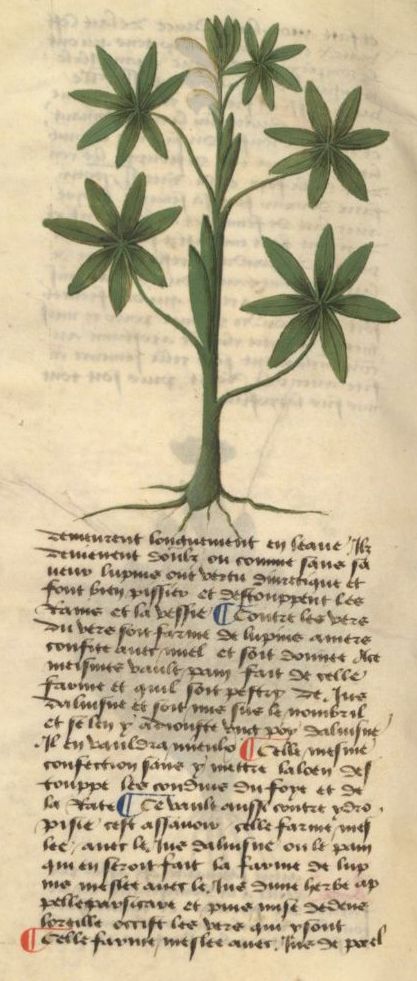 demeurent longuement en leaue / Ilz
deviennent doulz ou comme sans sa
ueur lupins ont vertu diuretique et
font bien pissier et destouppent les
rains et la vessie ¶ Contre les vers
du vers soit farine de lupins amers
confite auec miel et soit donnee Ace
meismes vault pain fait de celle
farine et quil soit pestry de Jus
daluisne et soit mis sus le nombril
et se len y adiouste ung poy daluisne
Il en vauldra mieulx ¶ Celle mesme
confection sans y mettre laloen des
touppe les conduis du foye et de
la rate ¶ Ce vault aussi contre ydro
pisie cest assauoir celle farine mes
lee auec le Jus daluisne ou le pain
qui en seroit fait la farine de lup
ins meslee auec le Jus dune herbe ap
pellee parsicare et puis mise dedens
loreille occist les vers qui y sont
¶ Celle farine meslee auec Jus de porel